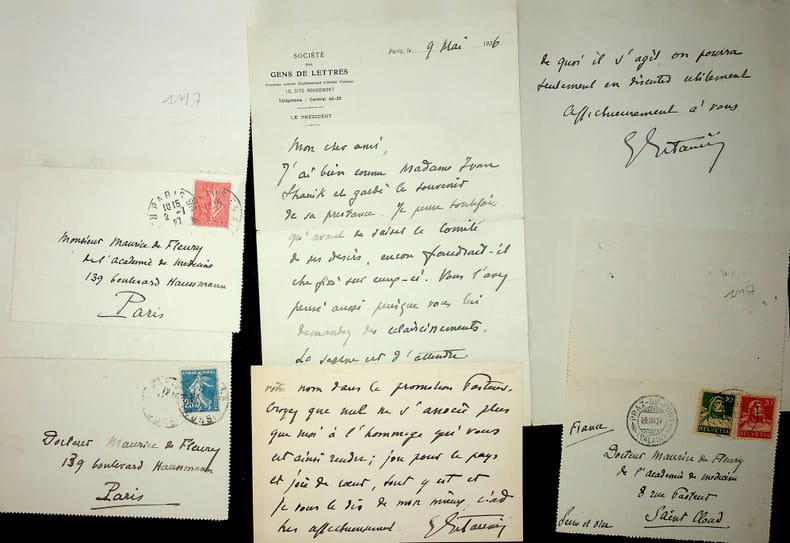 1117
PARIS
10 15
2 - 1
27
Monsieur Maurice de Fleury
de l'Académie de médecine
139 boulevard Haussmann
Paris
Docteur Maurice de Fleury
139 boulevard Haussmann
Paris
SOCIÉTÉ
DES
GENS DE LETTRES
Reconnue comme Etablissement d'Utilité Publique
10, CITÉ ROUGEMONT
Téléphone : Central
LE PRÉSIDENT
Paris, le 9 Mai 1926
Mon cher ami,
J'ai bien connu Madame Ivan
et gardé le souvenir
de sa prestance. Je pense toutefois
qu'avant de saisir le Comité
de ses désirs, encore faudrait-il
être fixé sur ceux-ci. Vous l'avez
pensé aussi puisque vous lui
demandez des éclaircissements.
La sagesse est d'attendre
votre nom dans la promotion Pasteur.
Croyez que nul ne s'associe plus
que moi à l'hommage qui vous
est ainsi rendu ; joie pour le pays
et joie de cœur, tout y est et
je vous le dis de mon mieux, c'est à d
très affectueusement.
de quoi il s'agit, on pourra
seulement en discuter utilement
Affectueusement à vous
1117
HELVETIA
HELVETIA
France
Docteur Maurice de Fleury
de l'académie de médecine
8 rue Pasteur
Saint Cloud
Seine et Oise